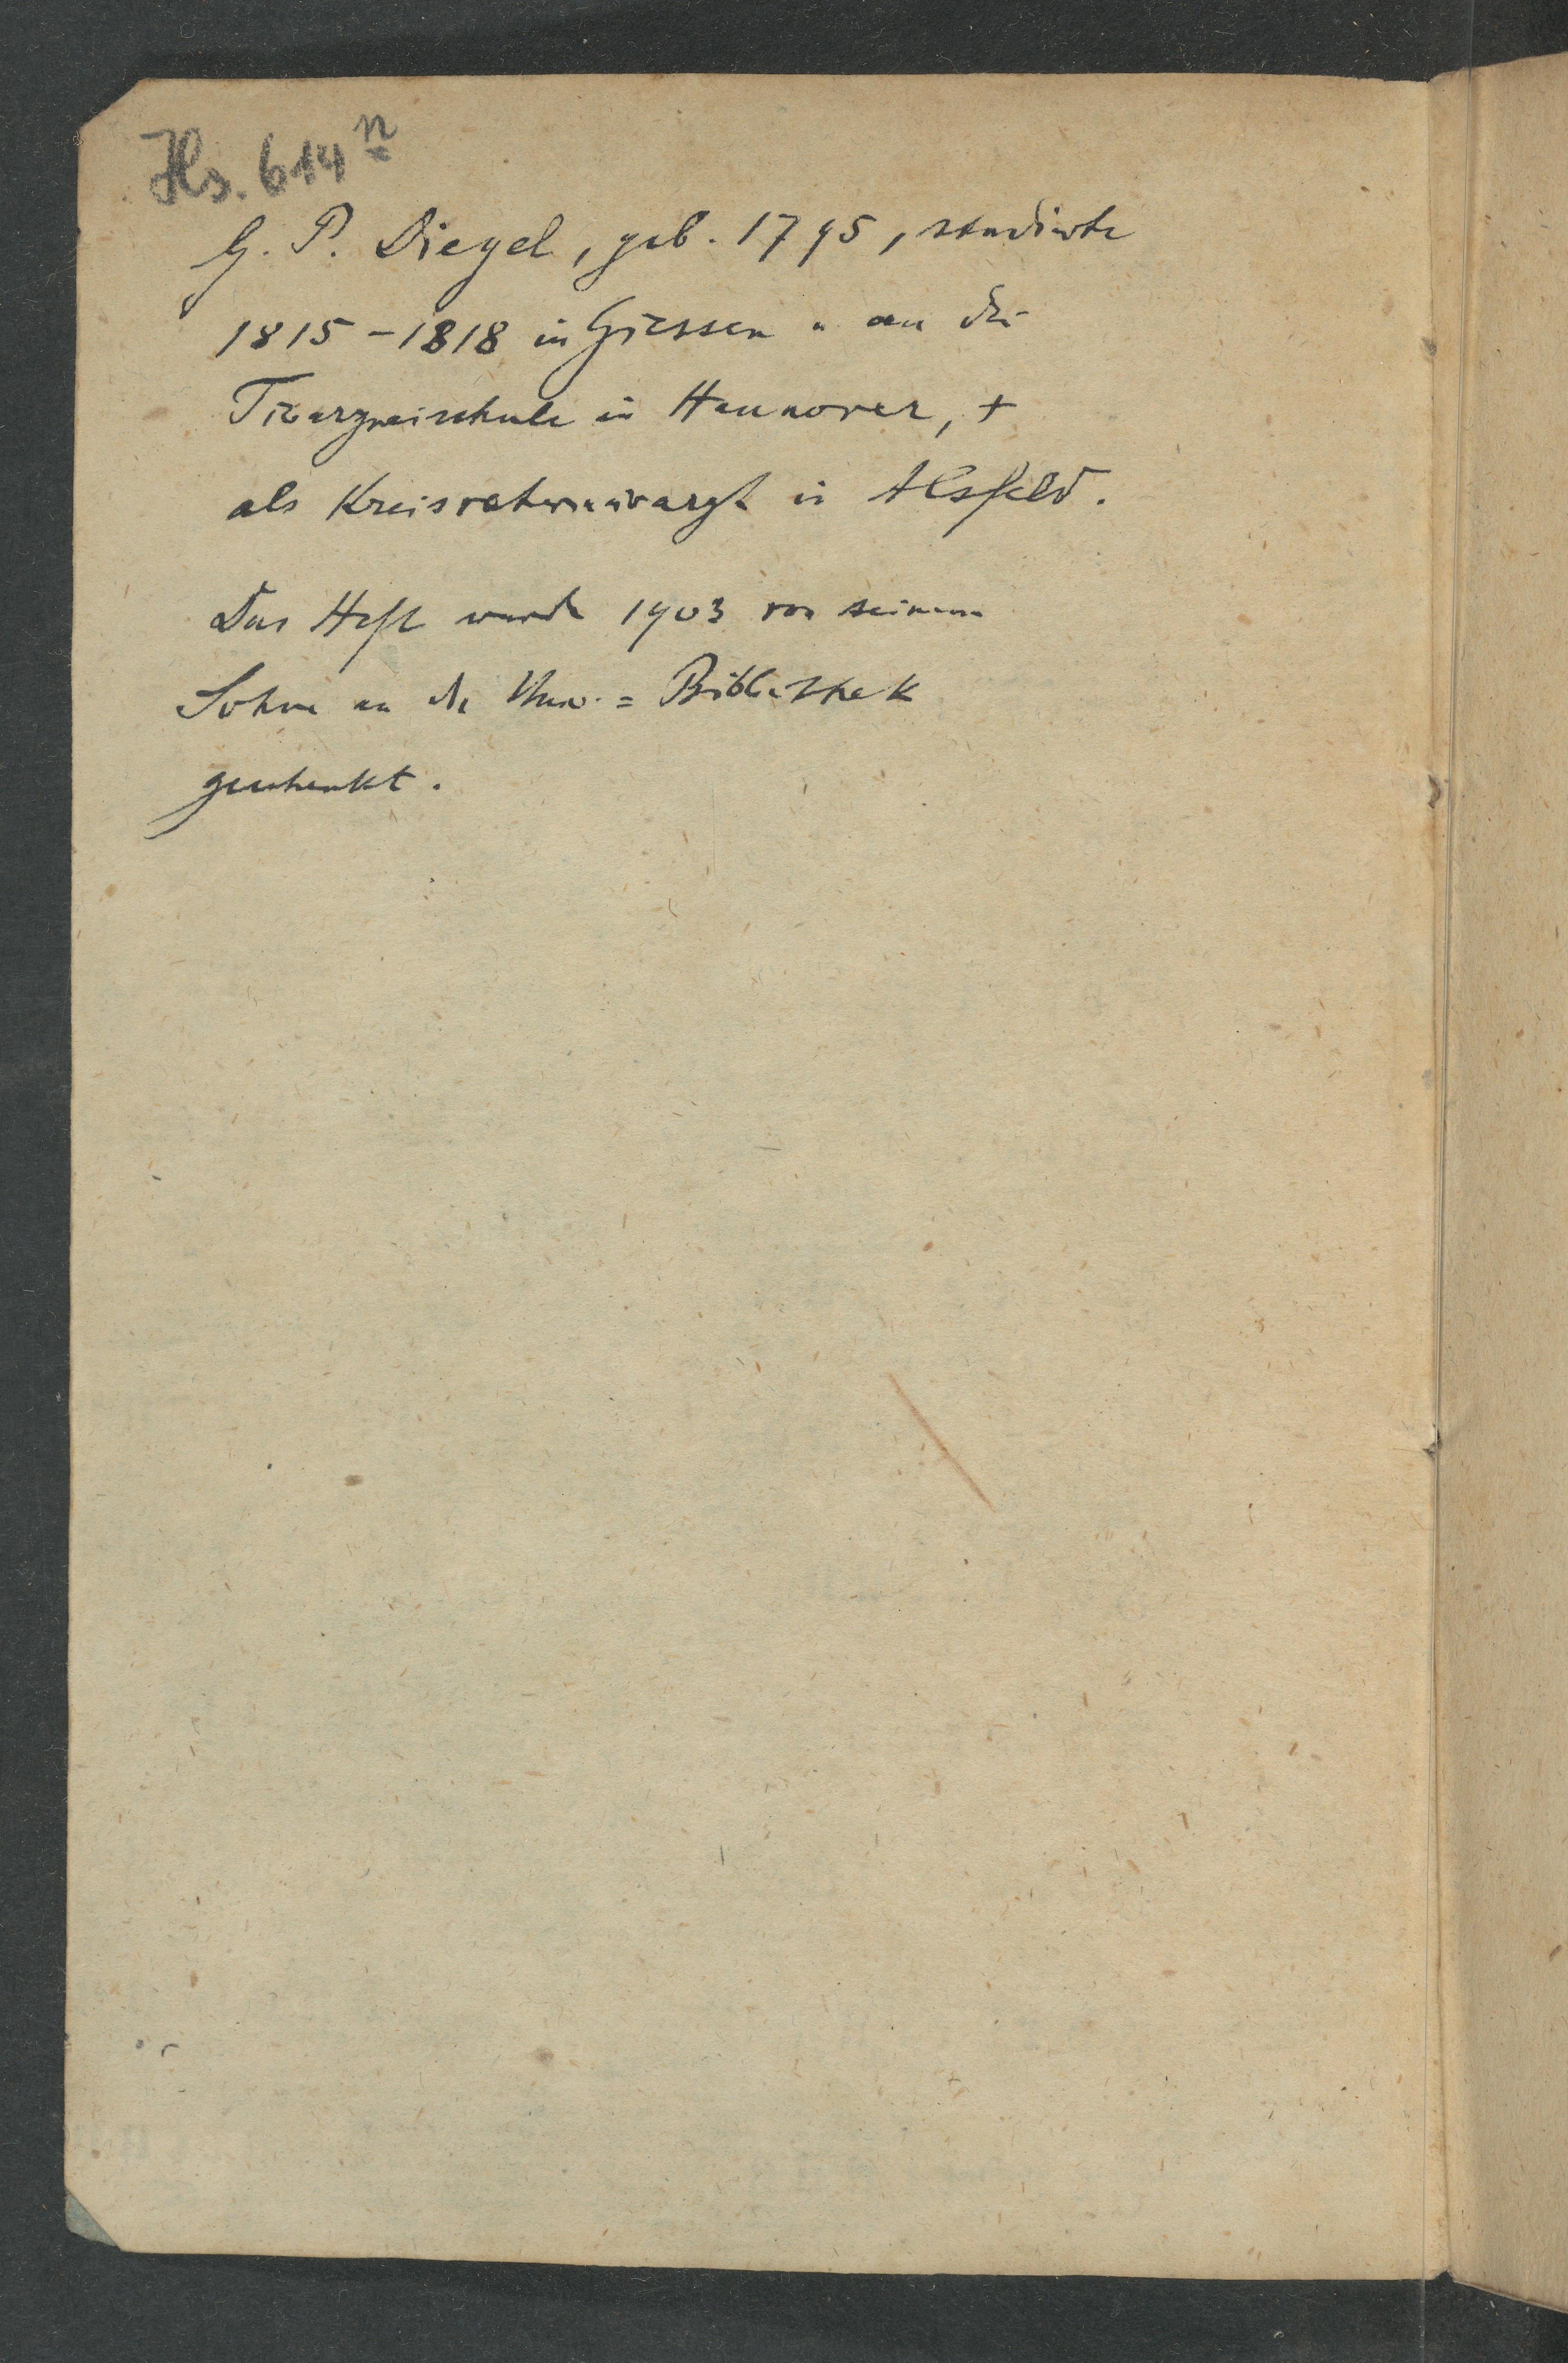 Hs. 614 n
G. P. Diegel, geb. 1795, studierte
1815-1818 in Giessen u. an der
Tierarzneischule in Hannover, +
als Kreisveterinärarzt in Alsfeld.
Das Heft wurde 1903 von seinem
Sohne an die Univ.=Bibliothek
geschenkt.